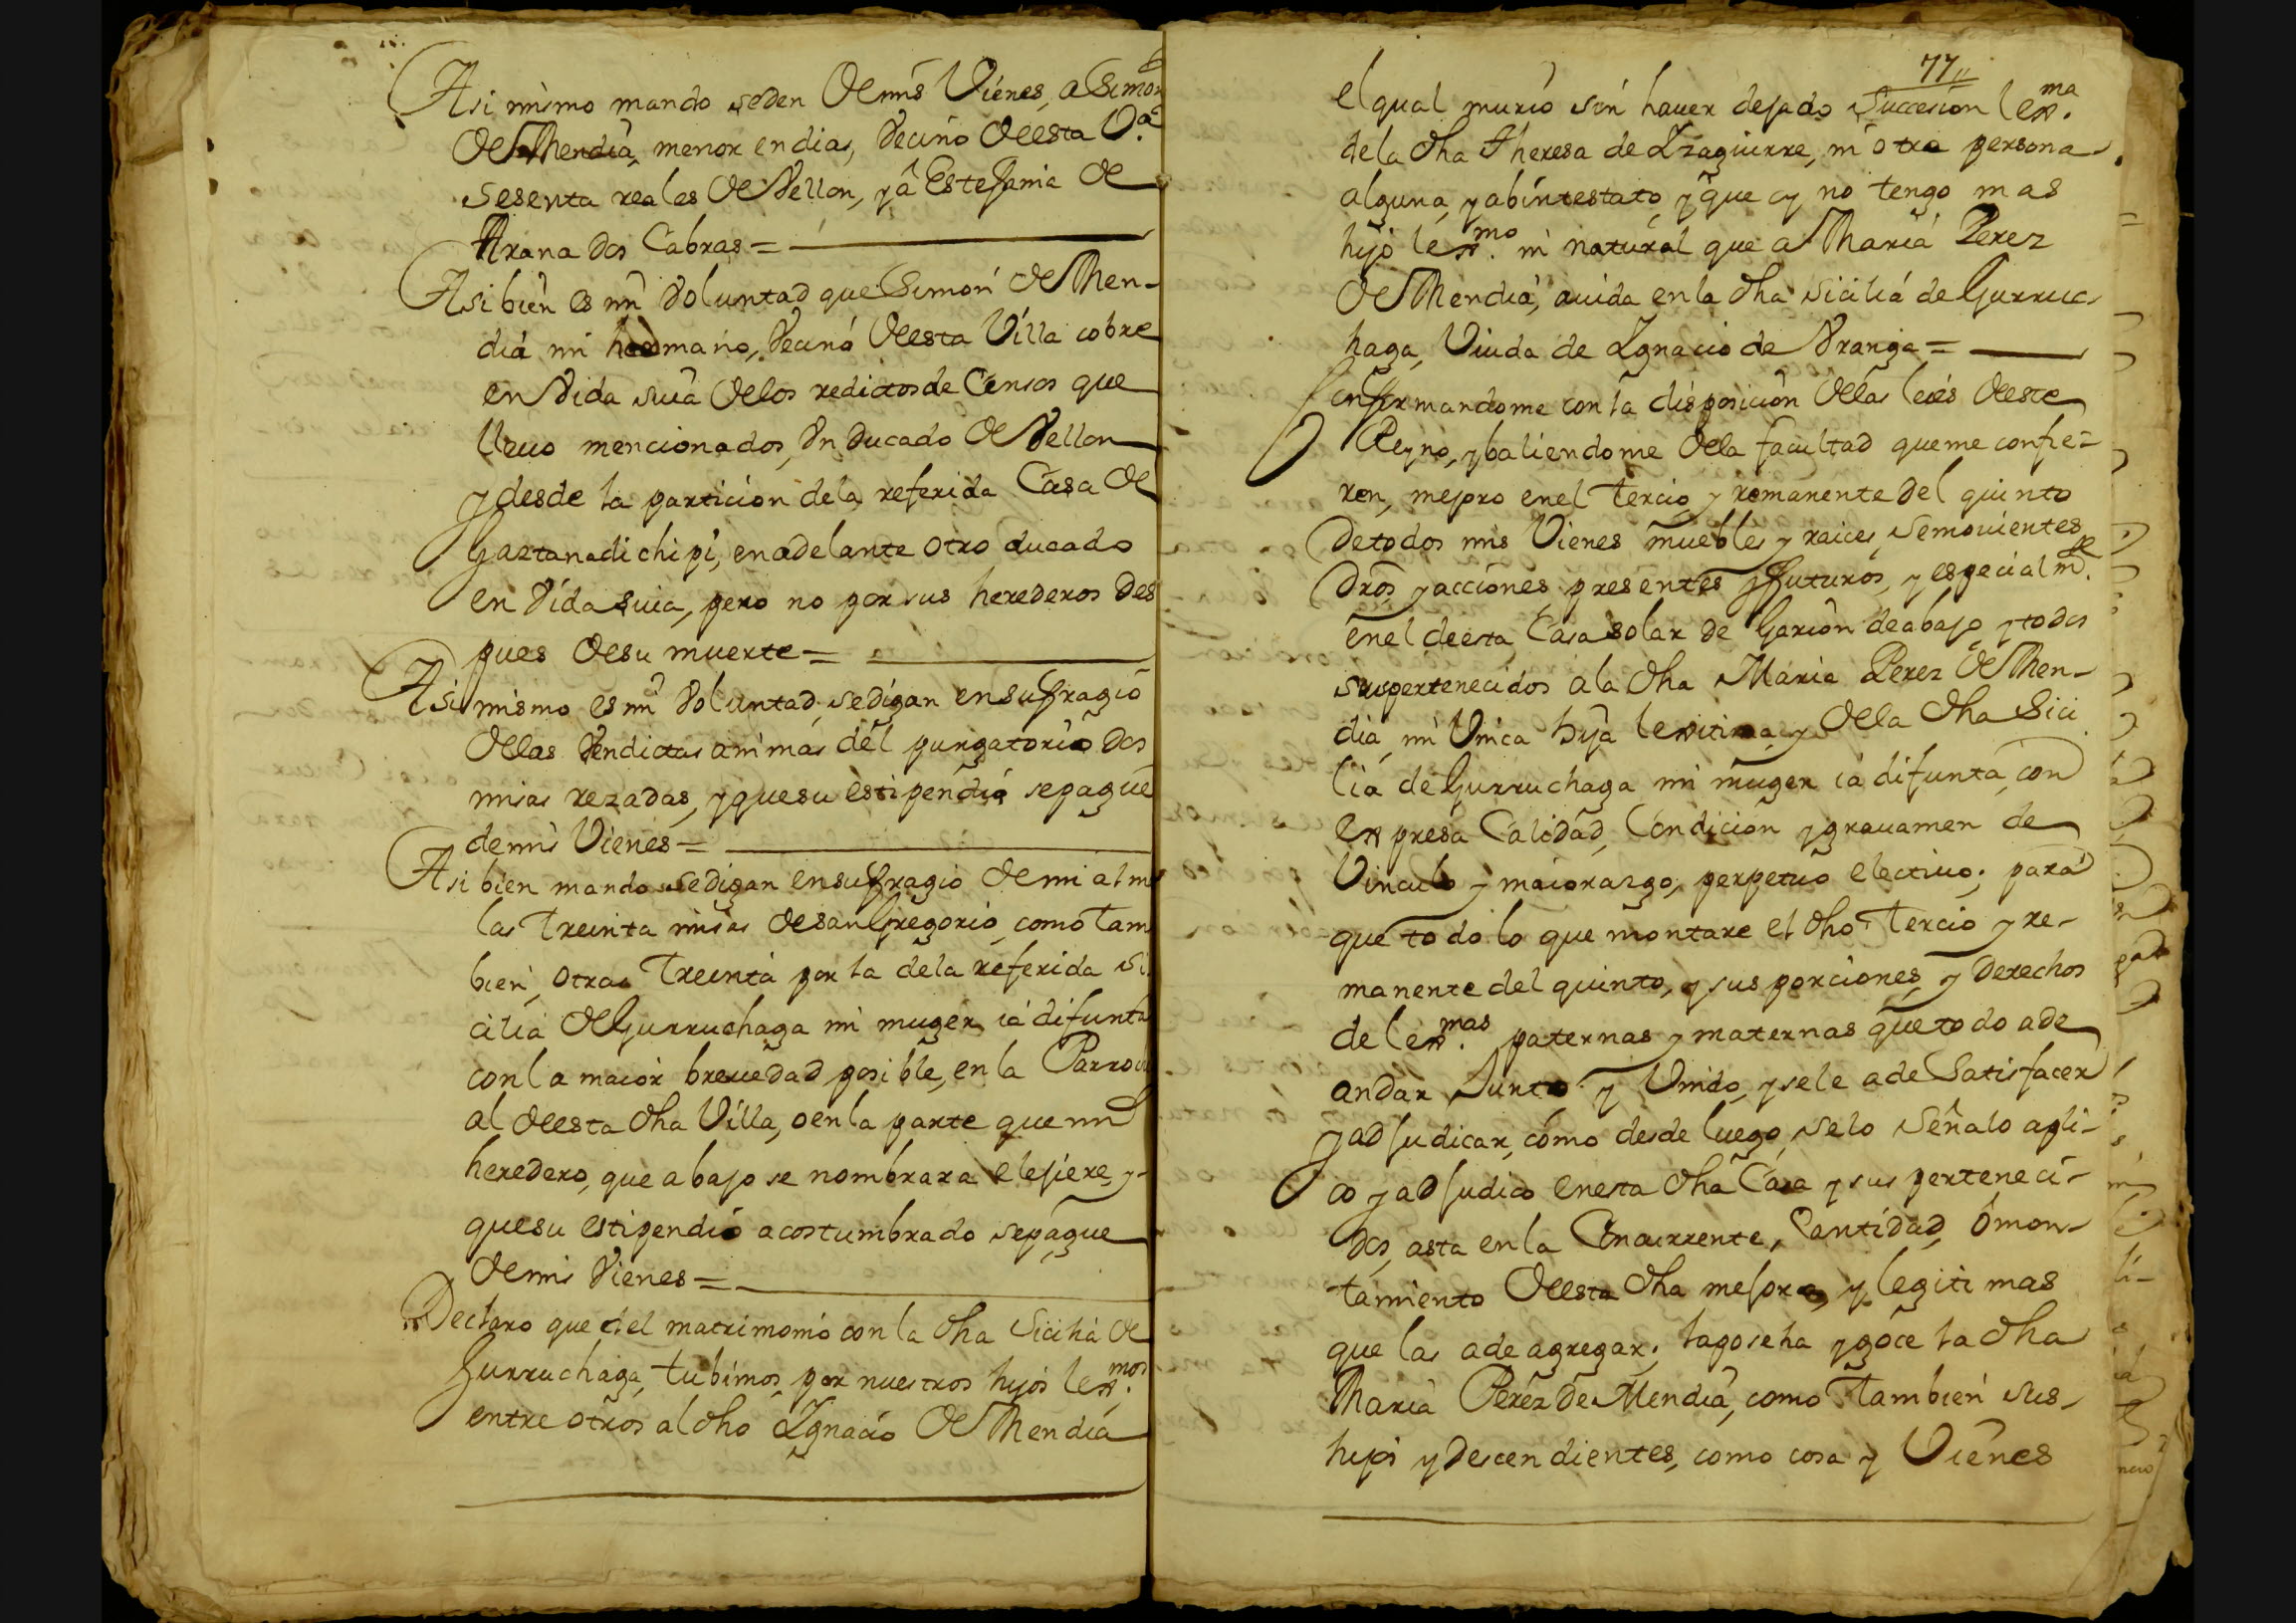 Asi mismo mando seden de mis Vienes, a Simon
de Mendia, menor en dias, Vecino de esta Va.
sesenta reales de Vellon, y â Estefania de
Arana dos Cabras =
Asi bien es mi Voluntad que Simon de Men-
dia mi hermano, Vecino de esta Villa cobre
en Vida suia de los redictos de Censos que
lleuo mencionados, Vn Ducado de Vellon
y desde la particion dela referida Casa de
Gaztanadichipi, en adelante otro ducado
en Vida suia, pero no por sus herederos Des
pues de su muerte =
Asi mismo es mi Voluntad, se digan en sufragio
de las Vendictas animas del purgatorio dos
misas rezadas, y que su estipendio se pague
de mis Vienes =
Asi bien mando se digan en sufragio de mi alm
las treinta misas de san Gregorio, como tam
bien, otras treinta por la dela referida Si
cilia de Gurruchaga mi muger ia difunta
con la maior breuedad posible, en la Parroqu
al de esta dha Villa, o en la parte que mi
heredero, que abajo se nombrara elejiere, y
que su estipendio acostumbrado se pague
de mis Vienes =
Declaro que del matrimonio con la dha Sicilia de
Gurruchaga, tubimos, por nuestros hijos lexmos.
entre otros al dho Ignacio de Mendia
77
el qual murio sin hauer dejado Succesion lexma.
dela dha Theresa de Izaguirre, ni otra persona
alguna, y abintestato, y que oy no tengo mas
hijo lexmo. ni natural que a Maria Perez
de Mendia, auida en la dha Sicilia de Gurruc
haga, Viuda de Ignacio de Vranga =
Conformandome con la disposicion de las leies de este
Reyno, y baliendome de la facultad que me confie=
ren, mejoro en el tercio y remanente del quinto
de todos mis Vienes muebles y raices, semouientes
dros, y acciones, presentes y futuros, y especialmte.
en el de esta Casa solar de Garion de abajo y todos
sus pertenecidos a la dha Maria Perez de Men-
dia, mi Vnica hija lexitima, y de la dha Sici
lia de Gurruchaga mi muger ia difunta, con
expresa Calidad, Condicion y grauamen de
Vinculo y maiorazgo, perpetuo electiuo; para
que todo lo que montare el dho tercio y re-
manente del quinto, y sus porciones, y Derechos
de lexmas. paternas y maternas que todo a de
andar Junto y Vnido, y se le a de Satisfacer
y adjudicar, como desde luego, se lo señalo apli-
co y adjudico en esta dha Casa y sus perteneci-
dos, asta en la Concurrente, Cantidad, ô mon-
tamiento de esta dha mejora, y legitimas
que las a de agregar; la goseha y goce la dha
Maria Perez de Mendia, como tambien sus
hijos y Descendientes, como cosa y Vienes